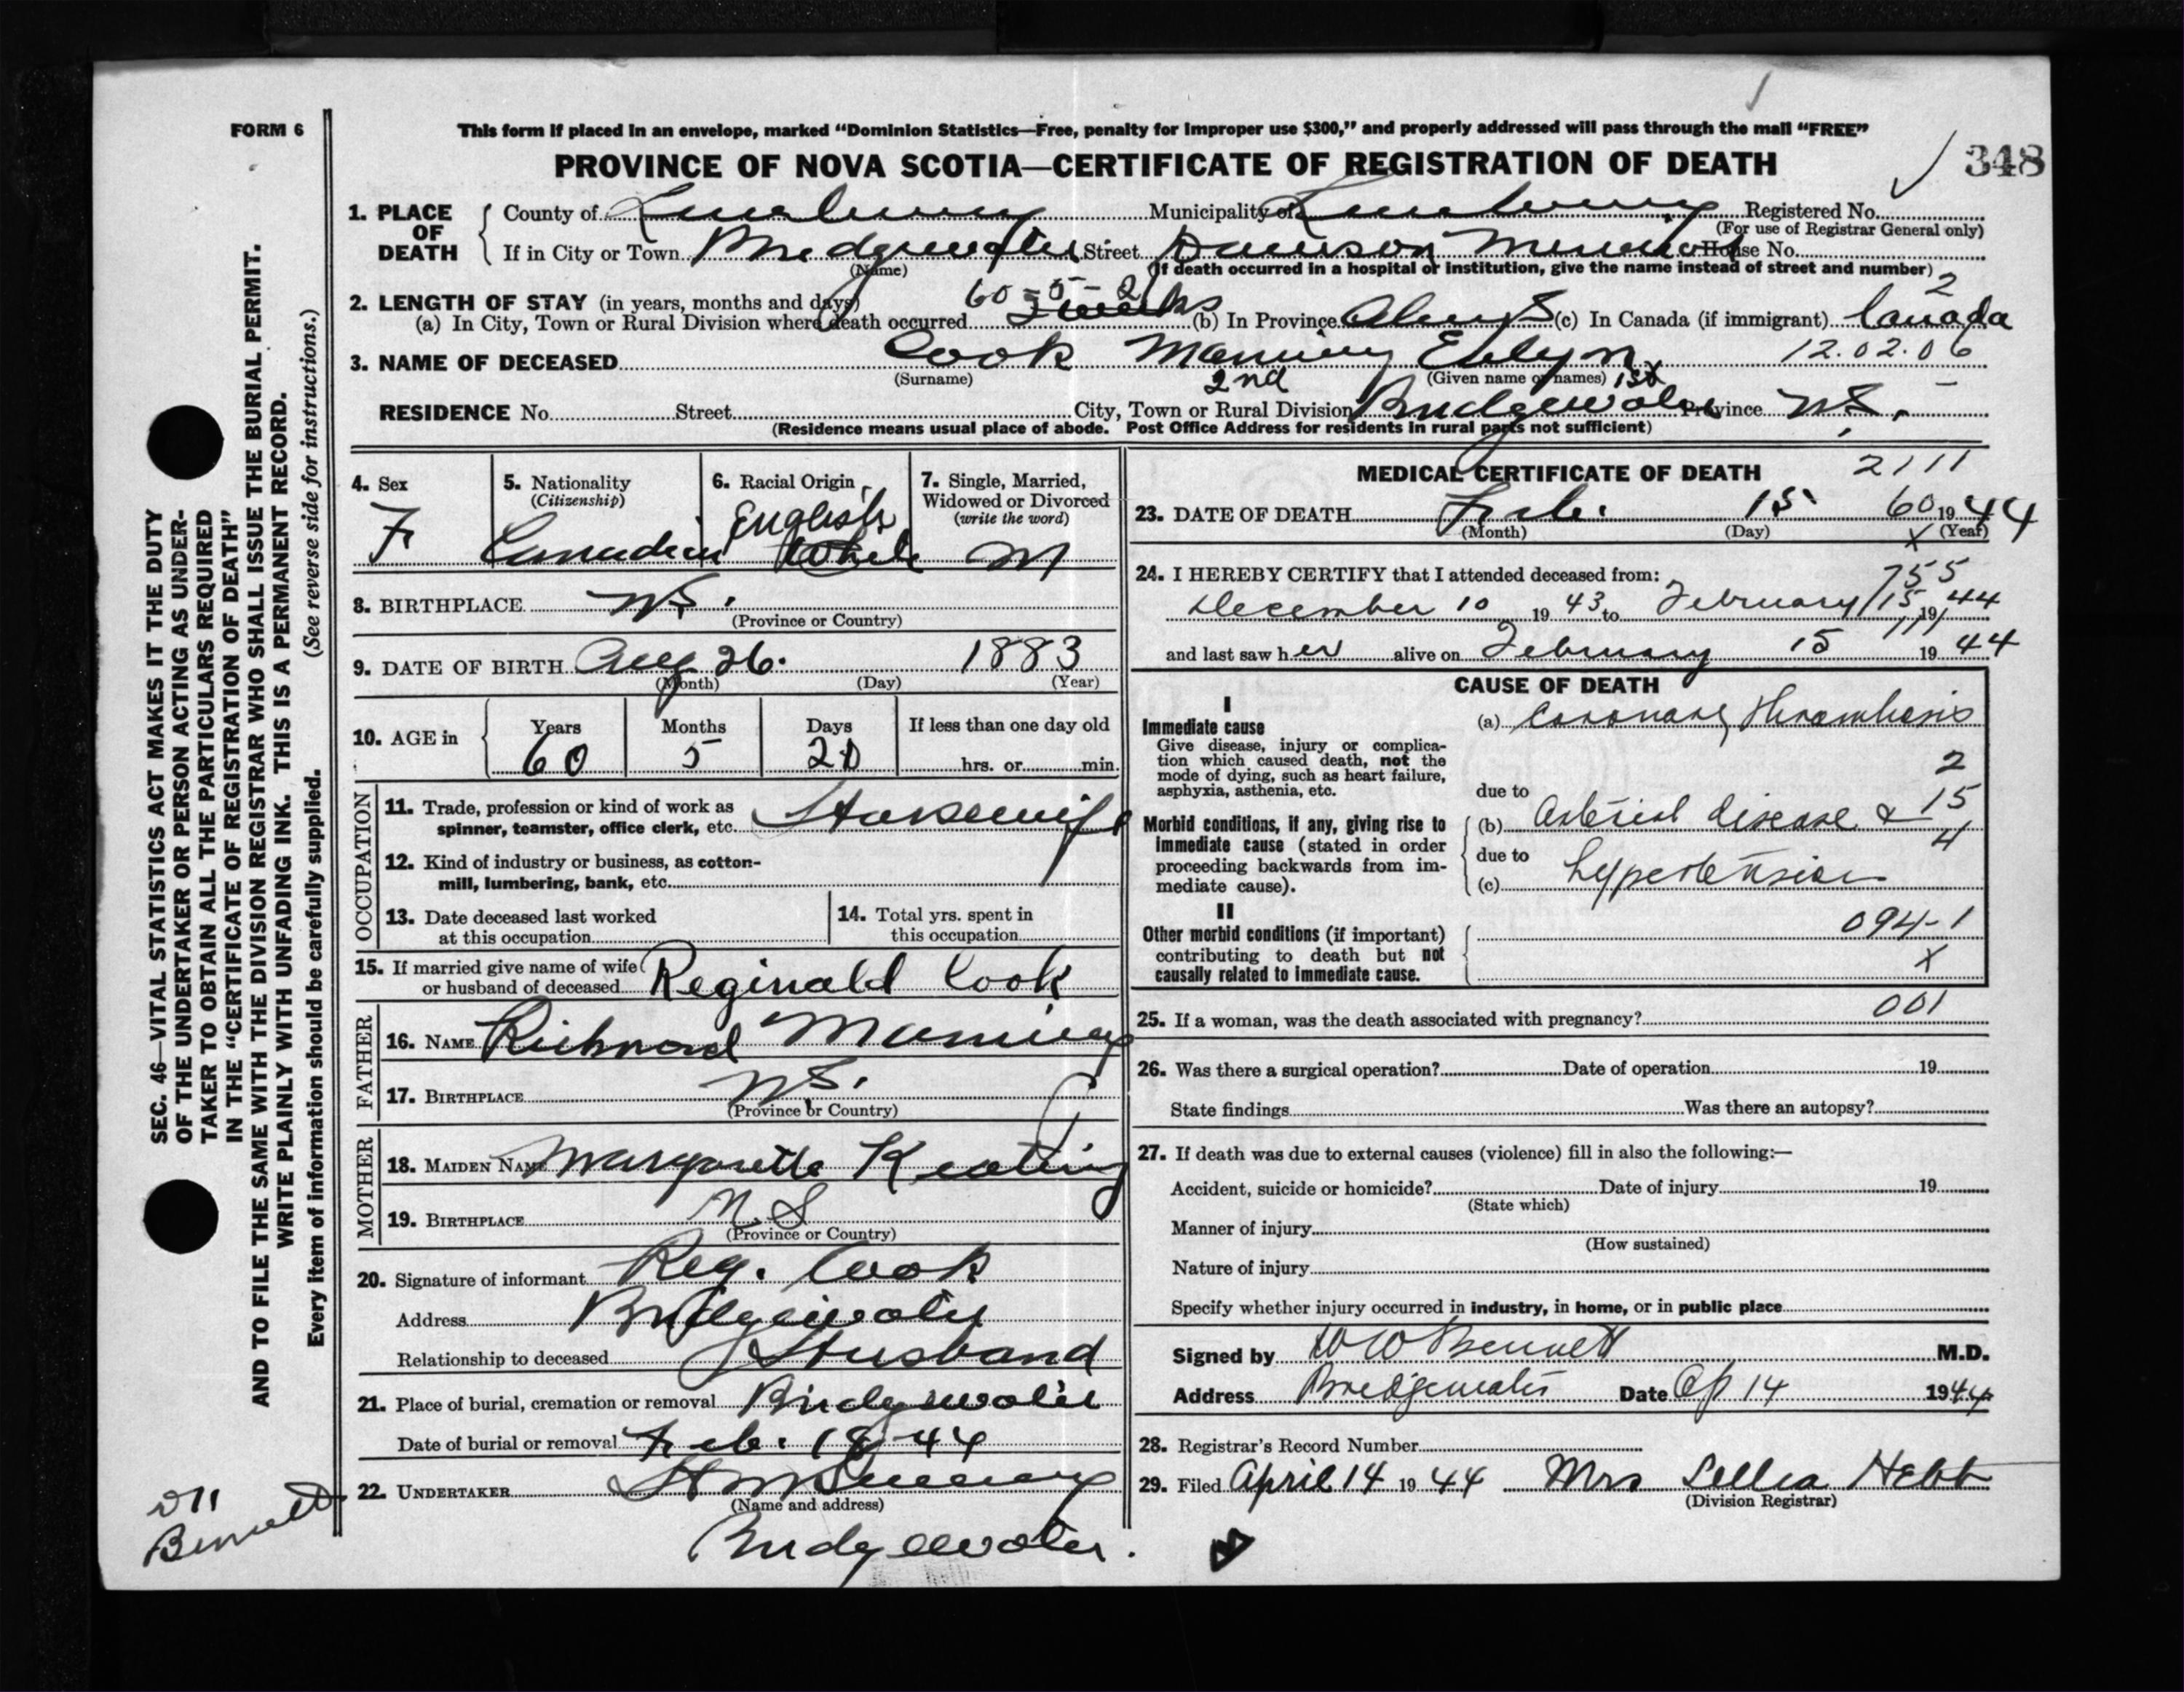 FORM 6
This form if placed in an envelope, marked "Dominion Statistics—Free, penalty for improper use $300," and properly addressed will pass through the mail "FREE"
PROVINCE OF NOVA SCOTIA—CERTIFICATE OF REGISTRATION OF DEATH
348
1. PLACE OF DEATH
County of Lunenburg Municipality of Lunenburg Registered No.
(For use of Registrar General only)
If in City or Town Bridgewater Street Dawson Memorial House No.
(Name) (If death occurred in a hospital or institution, give the name instead of street and number)
2. LENGTH OF STAY (in years, months and days) 60-5-21 2
(a) In City, Town or Rural Division where death occurred 2 weeks (b) In Province Always (c) In Canada (if immigrant) Canada
3. NAME OF DECEASED Cook Manning Evelyn 12.02.06
(Surname) 2nd (Given name or names) 1st
RESIDENCE No. Street City, Town or Rural Division Bridgewater Province N.S.
(Residence means usual place of abode. Post Office Address for residents in rural parts not sufficient)
4. Sex
F
5. Nationality
(Citizenship)
Canadian
6. Racial Origin
English
White
7. Single, Married, Widowed or Divorced
(write the word)
M
8. BIRTHPLACE N.S.
(Province or Country)
9. DATE OF BIRTH Aug 26. 1883
(Month) (Day) (Year)
10. AGE in Years Months Days If less than one day old
60 5 20 hrs. or min.
OCCUPATION
11. Trade, profession or kind of work as
spinner, teamster, office clerk, etc. Housewife
12. Kind of industry or business, as cotton-
mill, lumbering, bank, etc.
13. Date deceased last worked
at this occupation
14. Total yrs. spent in
this occupation
15. If married give name of wife
or husband of deceased Reginald Cook
FATHER
16. NAME Richmond Manning
17. BIRTHPLACE N.S.
(Province or Country)
MOTHER
18. MAIDEN NAME Margarette Keating
19. BIRTHPLACE N.S
(Province or Country)
20. Signature of informant Reg. Cook
Address Bridgewater
Relationship to deceased Husband
21. Place of burial, cremation or removal Bridgewater
Date of burial or removal Feb. 18-44
22. UNDERTAKER
(Name and address)
Bridgewater.
MEDICAL CERTIFICATE OF DEATH 2111
23. DATE OF DEATH Feb. 15 60 1944
(Month) (Day) x (Year)
24. I HEREBY CERTIFY that I attended deceased from: 755
December 10 1943 to February 15 1944
111
and last saw her alive on February 15 1944
CAUSE OF DEATH
I
Immediate cause
Give disease, injury or complica-
tion which caused death, not the
mode of dying, such as heart failure,
asphyxia, asthenia, etc.
(a) Coronary thrombosis
2
due to
15
Morbid conditions, if any, giving rise to
immediate cause (stated in order
proceeding backwards from im-
mediate cause).
(b) Arterial disease &
4
due to
(c) hypertension
II
Other morbid conditions (if important)
contributing to death but not
causally related to immediate cause.
094-1
X
001
25. If a woman, was the death associated with pregnancy?
26. Was there a surgical operation? Date of operation 19
State findings Was there an autopsy?
27. If death was due to external causes (violence) fill in also the following:—
Accident, suicide or homicide? Date of injury 19
(State which)
Manner of injury
(How sustained)
Nature of injury
Specify whether injury occurred in industry, in home, or in public place
Signed by W W Bennett M.D.
Address Bridgewater Date Ap 14 1944
28. Registrar's Record Number
29. Filed April 14 1944 Mrs Lellia Hebb
(Division Registrar)
SEC. 46—VITAL STATISTICS ACT MAKES IT THE DUTY
OF THE UNDERTAKER OR PERSON ACTING AS UNDER-
TAKER TO OBTAIN ALL THE PARTICULARS REQUIRED
IN THE "CERTIFICATE OF REGISTRATION OF DEATH"
AND TO FILE THE SAME WITH THE DIVISION REGISTRAR WHO SHALL ISSUE THE BURIAL PERMIT.
WRITE PLAINLY WITH UNFADING INK. THIS IS A PERMANENT RECORD.
Every item of information should be carefully supplied. (See reverse side for instructions.)
Bennett